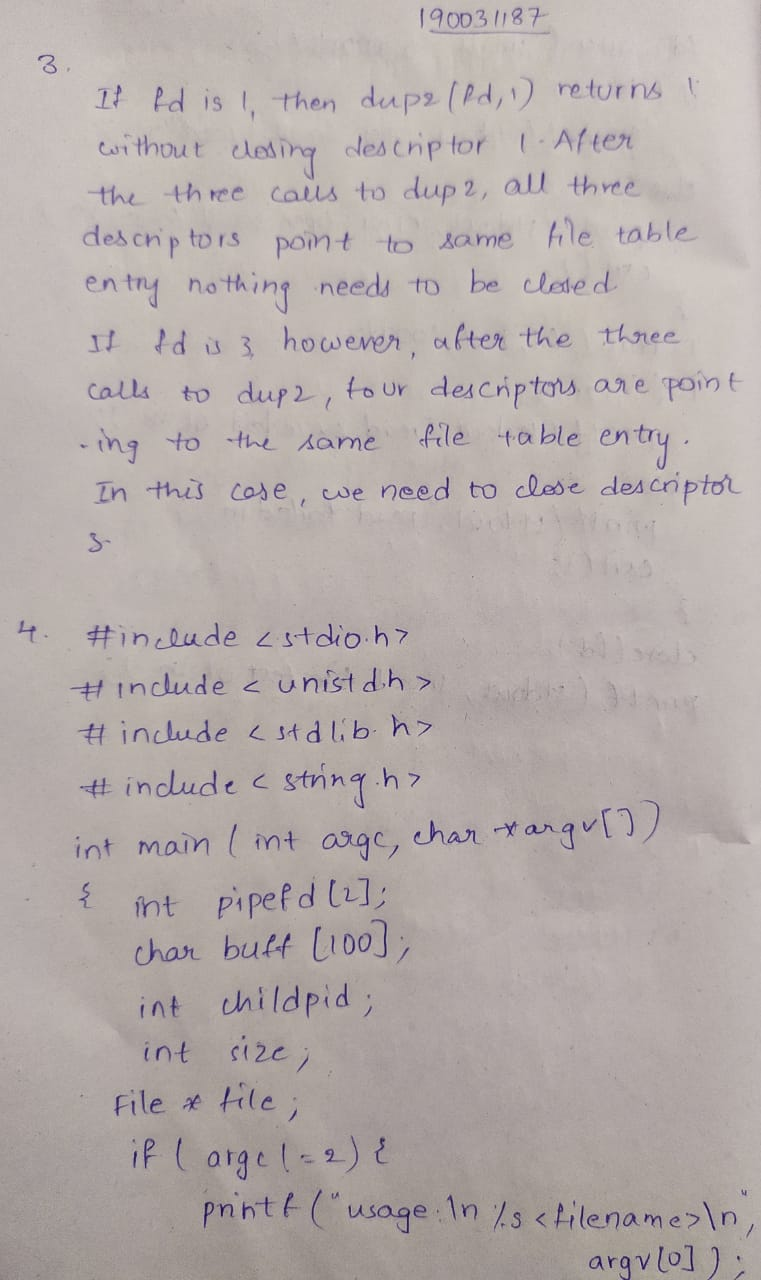 190031187
3.
If fd is 1, then dup2(fd,1) returns 1
without closing descriptor 1. After
the three calls to dup2, all three
descriptors point to same file table
entry nothing needs to be closed
If fd is 3 however, after the three
calls to dup2, four descriptors are point
-ing to the same file table entry.
In this case, we need to close descriptor
3.
4. #include <stdio.h>
#include < unistd.h >
# include < stdlib.h>
# include < string.h>
int main ( int argc, char *argv[])
{ int pipefd [2];
char buff [100];
int childpid ;
int size ;
File * file ;
if ( argc != 2) {
printf ("usage:\n %s <filename>\n",
argv[0] );